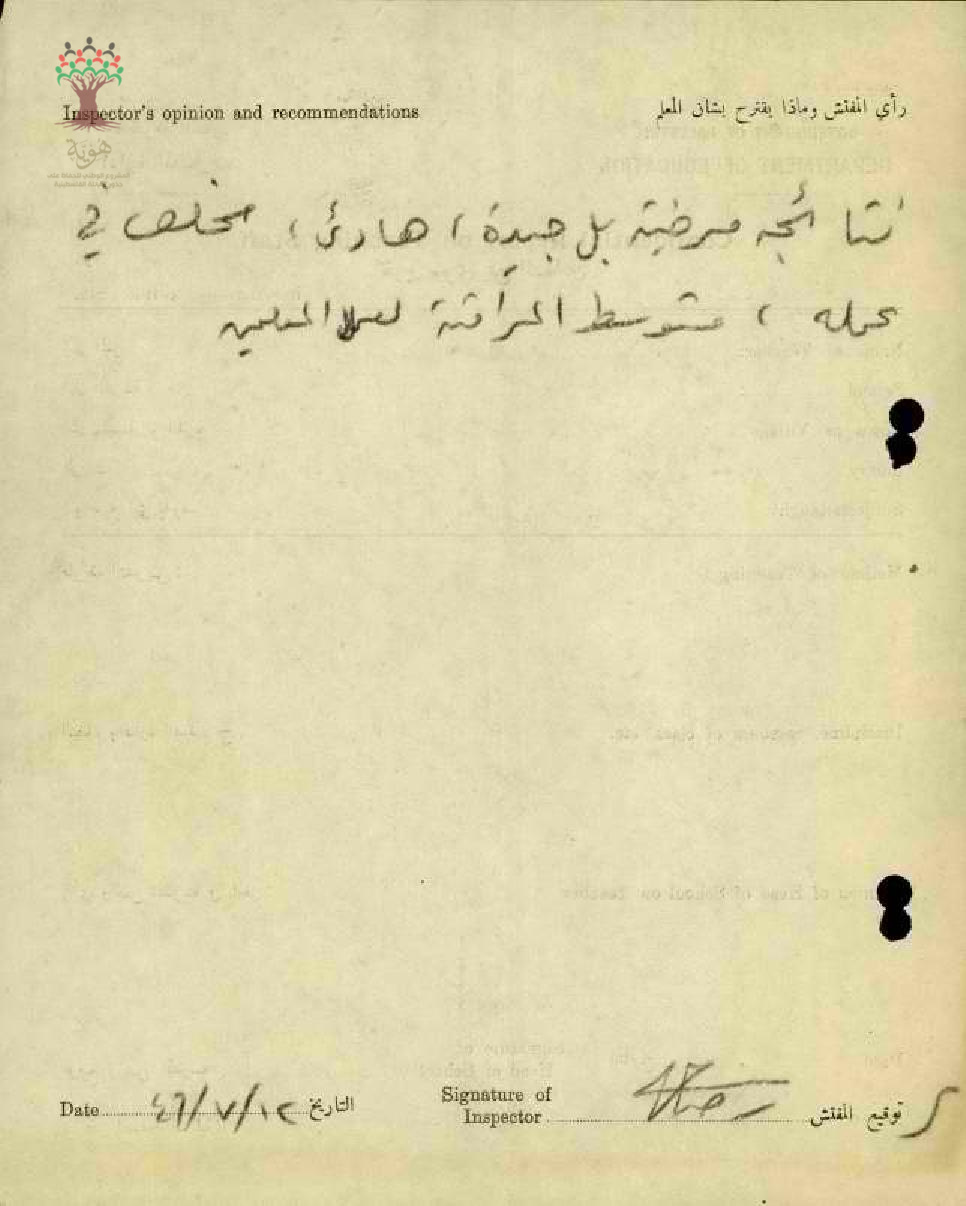 Inspector's opinion and recommendations
رأي المفتش وماذا يقترح بشان المعلم
هوية
نتائجه مرضية بل جيدة، هادئ، مخلص في
عمله، متوسط المراقبة لعمل المعلمين
Date 46/7/12 التاريخ
Signature of
Inspector
توقيع المفتش